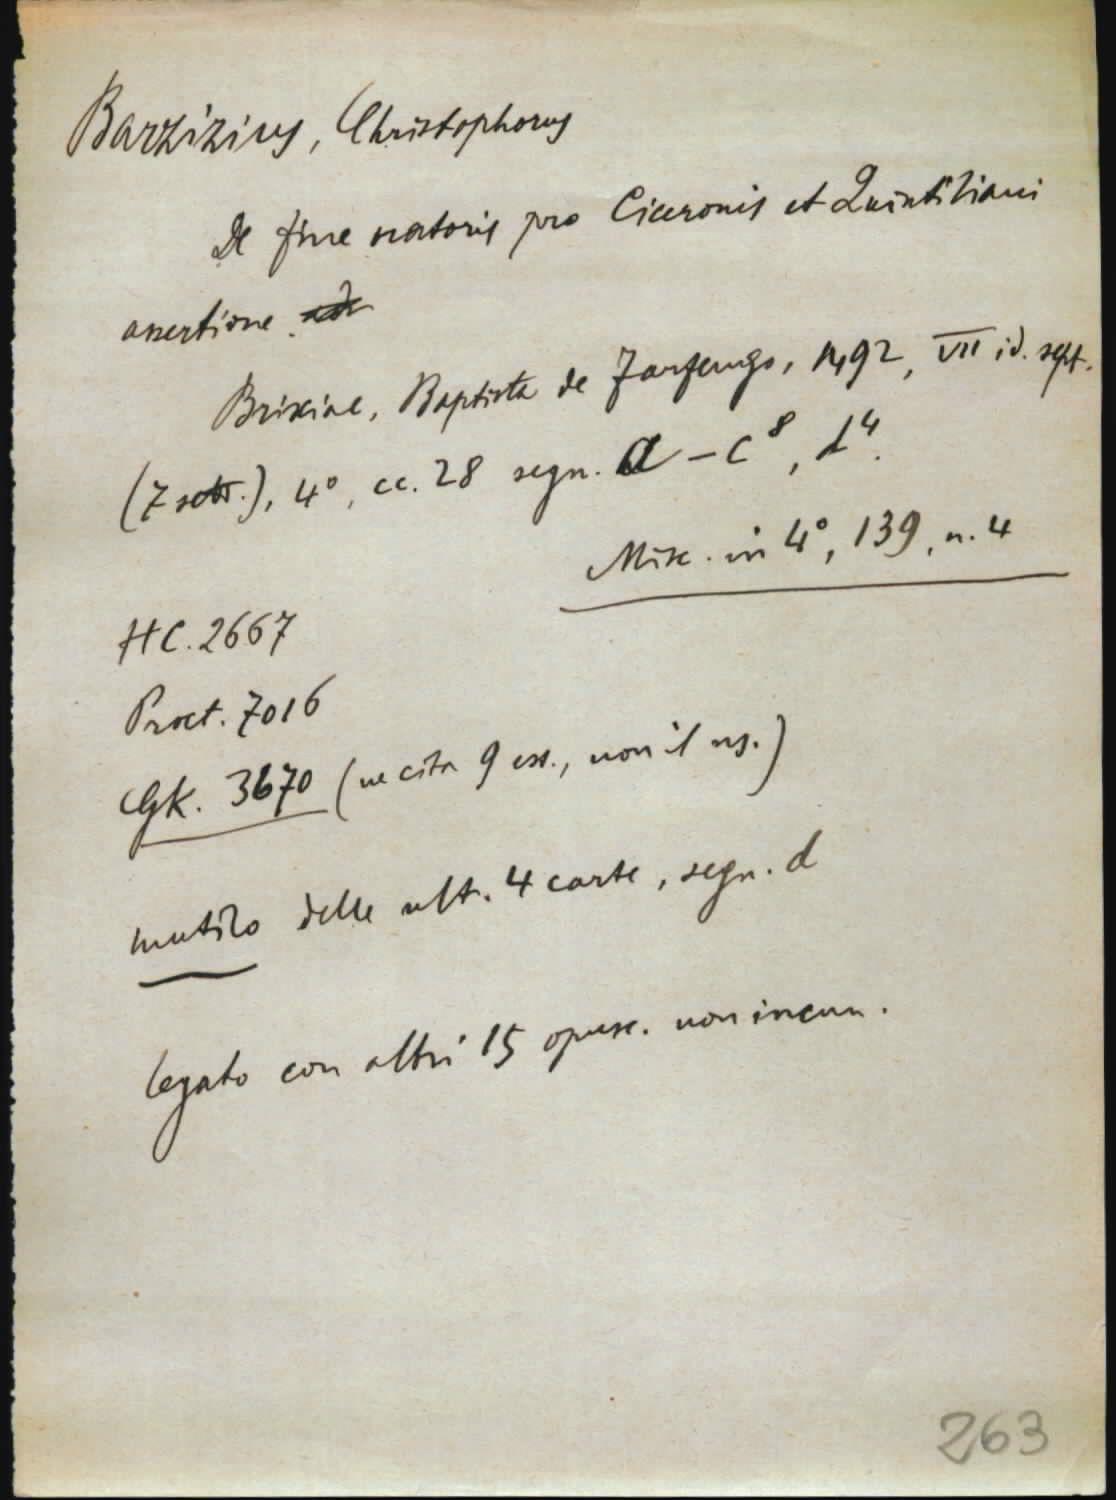 Barzizius, Christophorus
De fine oratoris pro Ciceronis et Quintiliani
assertione.
Brixiae, Baptista de Farfengo, 1492, VII id. sept.
(7 sett.), 4°, cc. 28 segn. a - c⁸, d⁴.
Misc. in 4°, 139, n. 4
HC. 2667
Proct. 7016
GK. 3670 (ne cita 9 ess., non il ns.)
mutilo delle ult. 4 carte, segn. d
legato con altri 15 opusc. non incun.
263